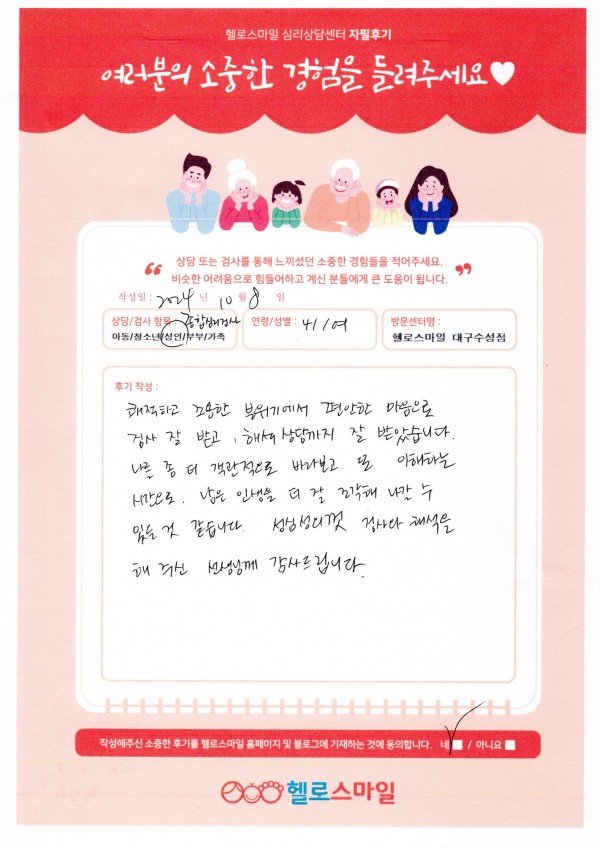 헬로스마일 심리상담센터 자필후기
여러분의 소중한 경험을 들려주세요♥
상담 또는 검사를 통해 느끼셨던 소중한 경험들을 적어주세요.
“ 비슷한 어려움으로 힘들어하고 계신 분들에게 큰 도움이 됩니다. ”
작성일 : 2024 년 10 월 8 일
상담/검사 항목 : 종합심리검사
아동/청소년/성인/부부/가족
연령/성별 : 41/여
방문센터명 :
헬로스마일 대구수성점
후기 작성 :
쾌적하고 조용한 분위기에서 편안한 마음으로
검사 잘 받고, 해석 상담까지 잘 받았습니다.
나를 좀 더 객관적으로 바라보고 또 이해하는
시간으로. 남은 인생을 더 잘 조각해 나갈 수
있을 것 같습니다. 성심성의껏 검사와 해석을
해 주신 선생님께 감사드립니다.
작성해주신 소중한 후기를 헬로스마일 홈페이지 및 블로그에 기재하는 것에 동의합니다. 네 / 아니요
헬로스마일